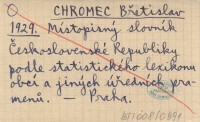 CHROMEC Břetislav
1929. Místopisný slovník
Československé Republiky
podle statistického lexikonu
obcí a jiných úředních pra-
menů. — Praha.